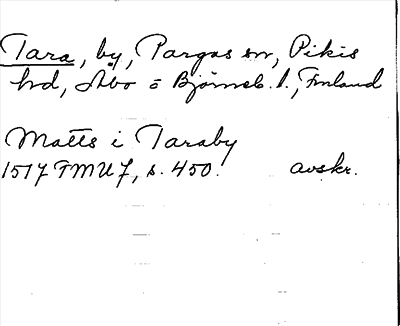 Tara, by, Pargas sn, Pikis
hd, Åbo o Björneb. l., Finland
Matts i Taraby
1517 FMU 7, s. 450. avskr.